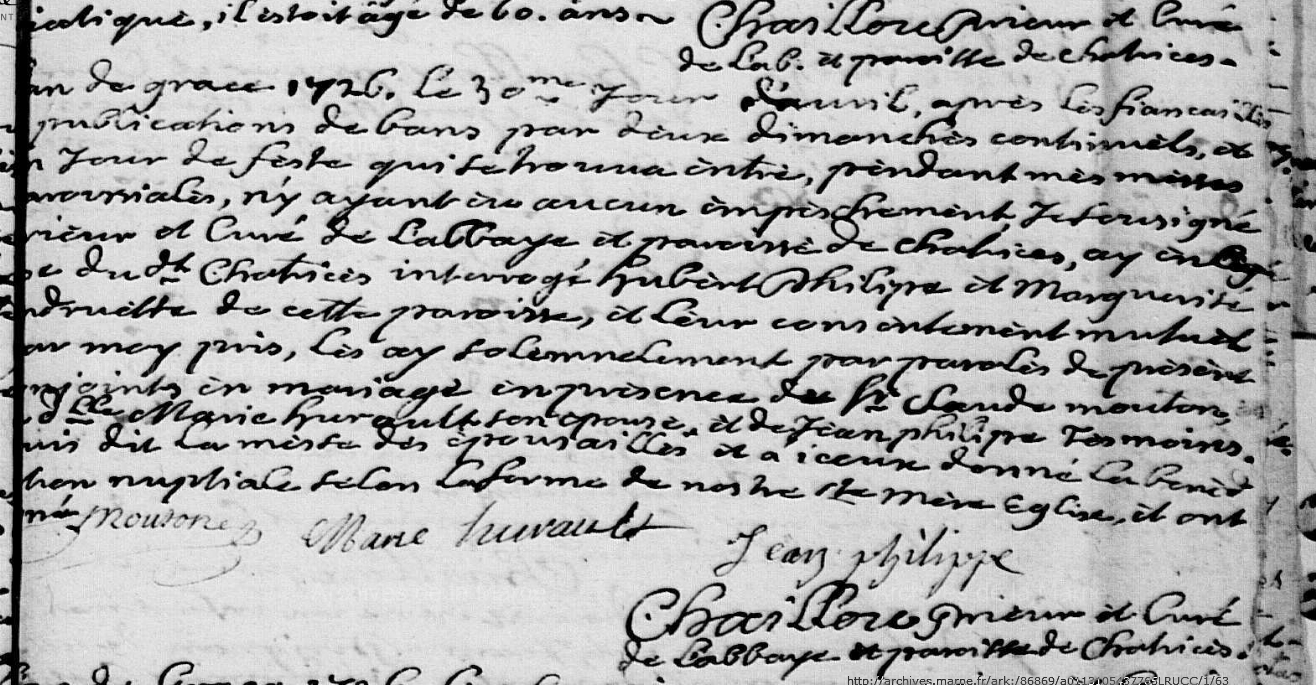 iastique, il estoit âgé de 60. ans
Chaillou prieur et Curé
de Lab. et paroisse de chatrices.
an de grace 1726. le 30me Jour d'avril, apres les fiancailles
publications de bans par deux dimanches continuels, et
un Jour de feste qui se trouva entre, pendant mes messes
paroissiales, n'y ayant eu aucun empeschement, Je sousigné
prieur et Curé de Labbaye et paroisse de chatrices, ay en
du dt Chatrices interrogé hubert Philipe et Marguerite
de cette paroisse, et leur consentement mutuel
par moy pris, les ay solemnelement par paroles de présent
conjoints en mariage en présence de sr Claude mouton,
dlle Marie hurault son epouse, et de Jean philipe Tesmoins.
puis dit la messe des épousailles et a iceux donné la bened
tion nuptiale selon la forme de nostre ste mère Eglise, et ont
né Mouton Marie hurault
Jean philippe
Chaillou prieur et Curé
de Labbaye et paroisse de Chatrices.
http://archives.marne.fr/ark:/86869/a011310543779SLRUCC/1/63